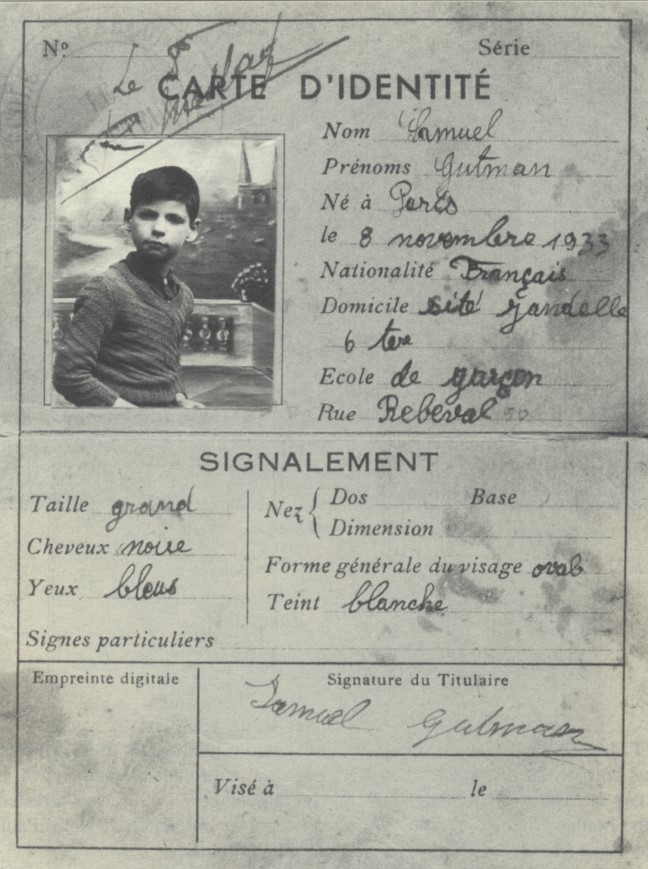 Nº Série
CARTE D'IDENTITÉ
Nom Samuel
Prénoms Gutman
Né à Paris
le 8 novembre 1933
Nationalité Français
Domicile sité Jandelle
6 ter
Ecole de garçon
Rue Rebeval 50
SIGNALEMENT
Taille grand
Cheveux noire
Yeux bleus
Nez { Dos Base
Dimension
Forme générale du visage oval
Teint blanche
Signes particuliers
Empreinte digitale
Signature du Titulaire
Samuel Gutman
Visé à le